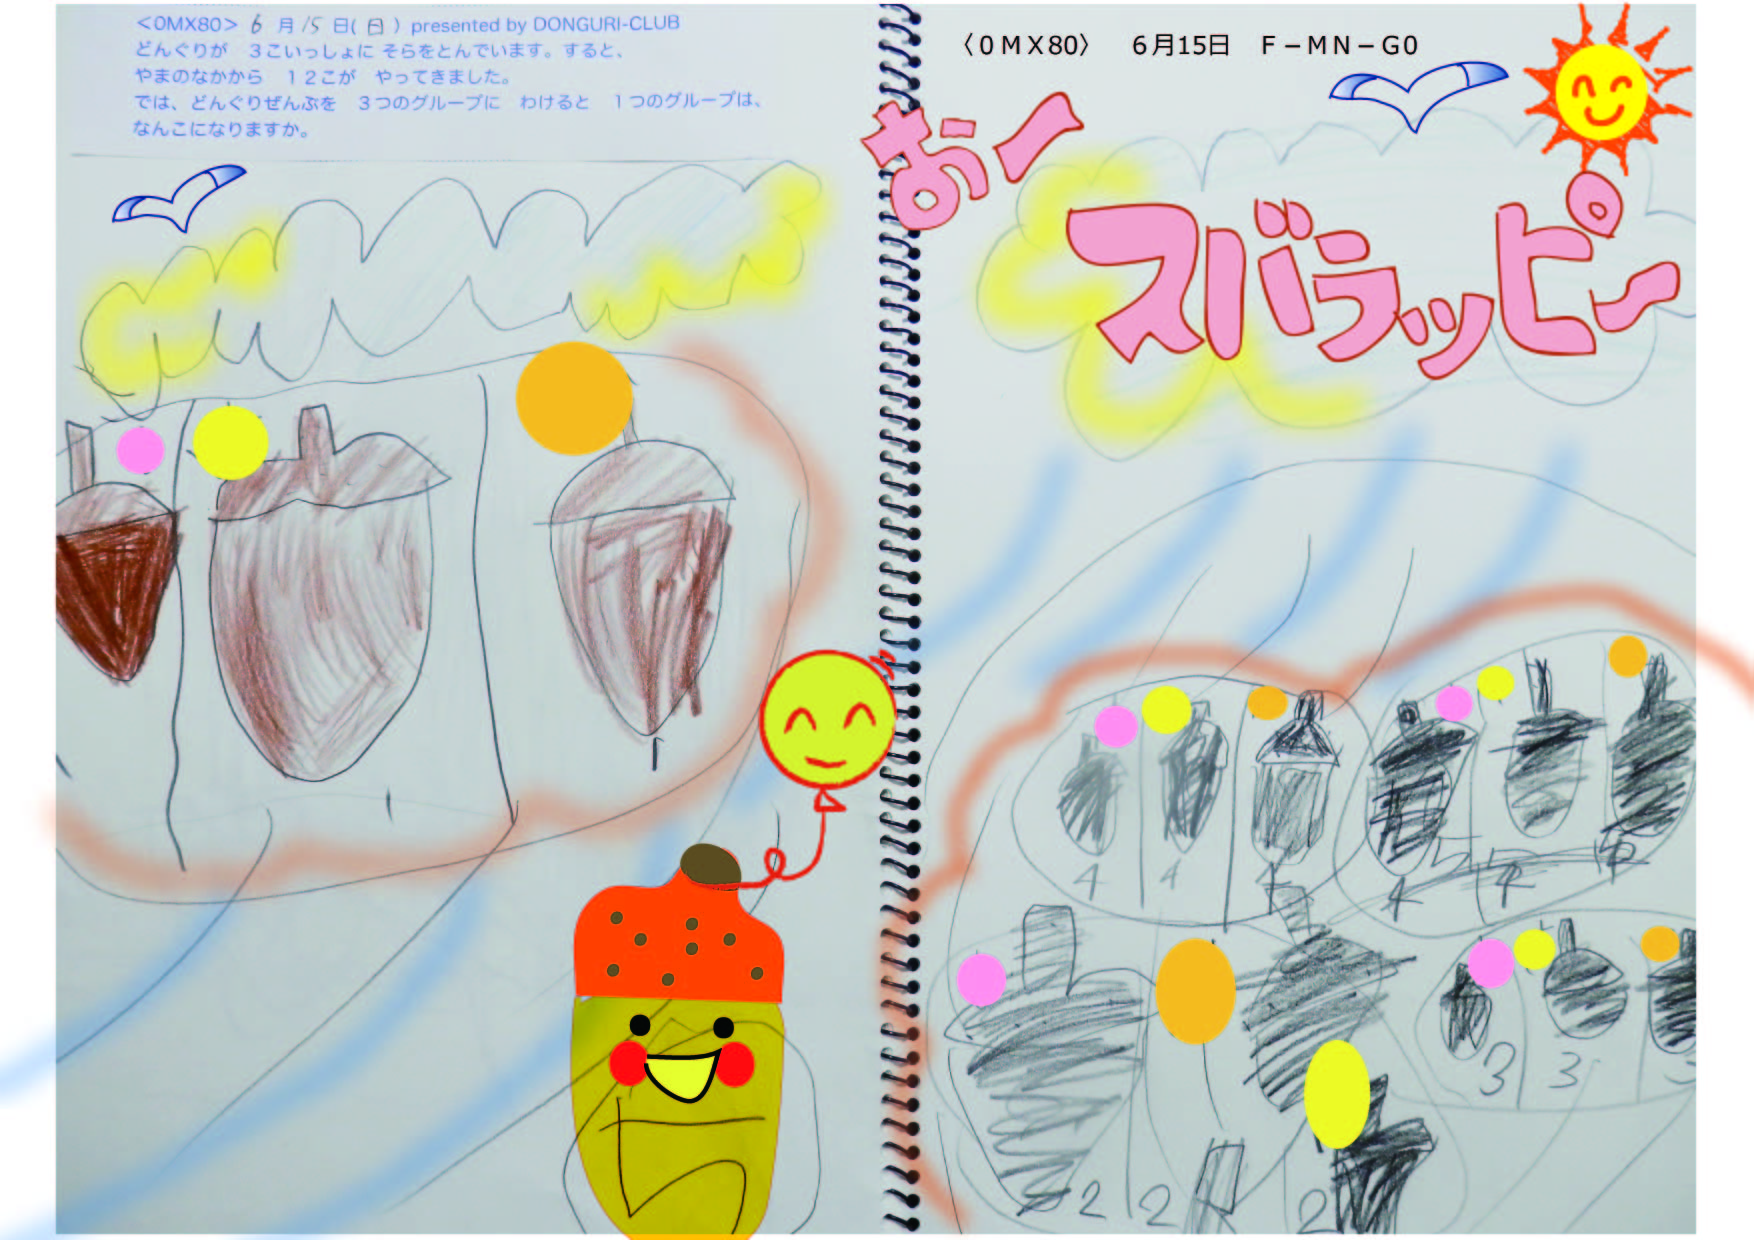 <0MX80> 6 月 15 日( 日 ) presented by DONGURI-CLUB
どんぐりが 3こいっしょに そらをとんでいます。すると、
やまのなかから 12こが やってきました。
では、どんぐりぜんぶを 3つのグループに わけると 1つのグループは、
なんこになりますか。
〈0MX80〉 6月15日 F－MN－G0
おー
スバラッピー
4 4 4 4
3 3
2 2 2
5